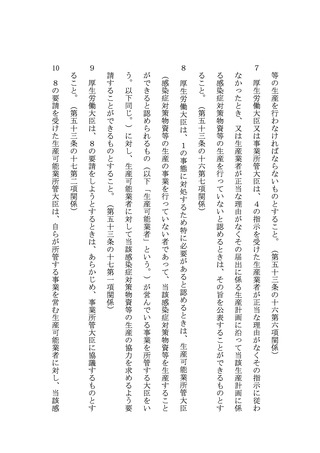 等の生産を行わなければならないものとすること。（第五十三条の十六第六項関係）
７　厚生労働大臣又は事業所管大臣は、４の指示を受けた生産業者が正当な理由がなくその指示に従わ
なかったとき、又は生産業者が正当な理由がなくその届出に係る生産計画に沿って当該生産計画に係
る感染症対策物資等の生産を行っていないと認めるときは、その旨を公表することができるものとす
ること。（第五十三条の十六第七項関係）
８　厚生労働大臣は、１の事態に対処するため特に必要があると認めるときは、生産可能業所管大臣
（感染症対策物資等の生産の事業を行っていない者であって、当該感染症対策物資等を生産すること
ができると認められるもの（以下「生産可能業者」という。）が営んでいる事業を所管する大臣をい
う。以下同じ。）に対し、生産可能業者に対して当該感染症対策物資等の生産の協力を求めるよう要
請することができるものとすること。（第五十三条の十七第一項関係）
９　厚生労働大臣は、８の要請をしようとするときは、あらかじめ、事業所管大臣に協議するものとす
ること。（第五十三条の十七第二項関係）
10　８の要請を受けた生産可能業所管大臣は、自らが所管する事業を営む生産可能業者に対し、当該感